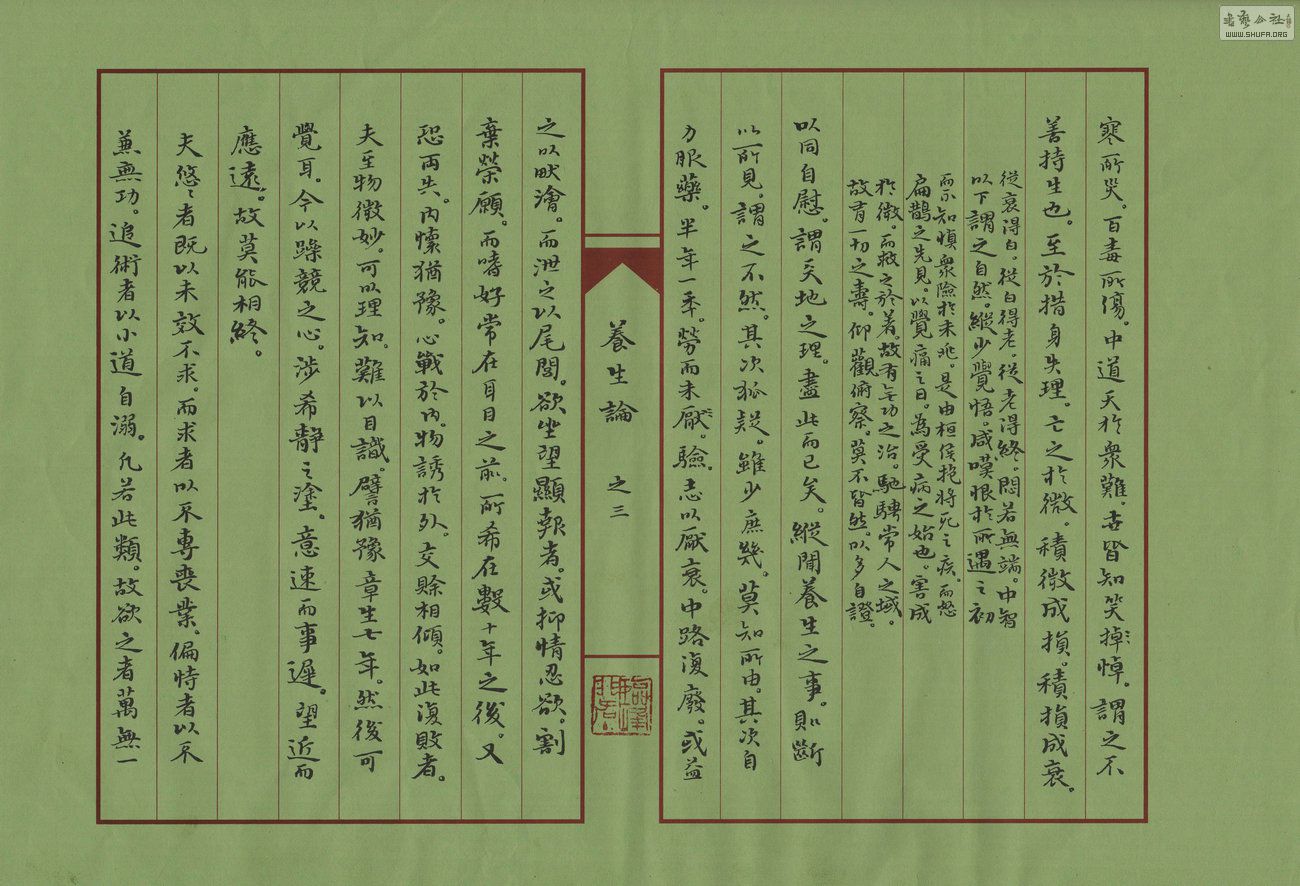 寒所災。百毒所傷。中道夭於衆難。世皆知笑掉悼。謂之不
善持生也。至於措身失理。亡之於微。積微成損。積損成衰。
從衰得白。從白得老。從老得終。悶若無端。中智
以下謂之自然。縱少覺悟。咸嘆恨於所遇之初
而不知慎衆險於未兆。是由桓侯抱將死之疾。而怒
扁鵲之先見。以覺痛之日。為受病之始也。害成
於微。而救之於著。故有無功之治。馳騁常人之域。
故有一切之壽。仰觀俯察。莫不皆然。以多自證。
以同自慰。謂天地之理。盡此而已矣。縱聞養生之事。則斷
以所見。謂之不然。其次狐疑。雖少庶幾。莫知所由。其次自
力服藥。半年一年。勞而未厭。驗。志以厭衰。中路復廢。或益
養生論 之三
之以畎澮。而泄之以尾閭。欲坐望顯報者。或抑情忍欲。割
棄榮願。而嗜好常在耳目之前。所希在數十年之後。又
恐兩失。內懷猶豫。心戰於內。物誘於外。交賒相傾。如此復敗者。
夫至物微妙。可以理知。難以目識。譬猶豫章生七年。然後可
覺耳。今以躁競之心。涉希靜之塗。意速而事遲。望近而
應遠。故莫能相終。
夫悠々者既以未效不求。而求者以不專喪業。偏恃者以不
兼無功。追術者以小道自溺。凡若此類。故欲之者萬無一
書藝公社
WWW.SHUFA.ORG